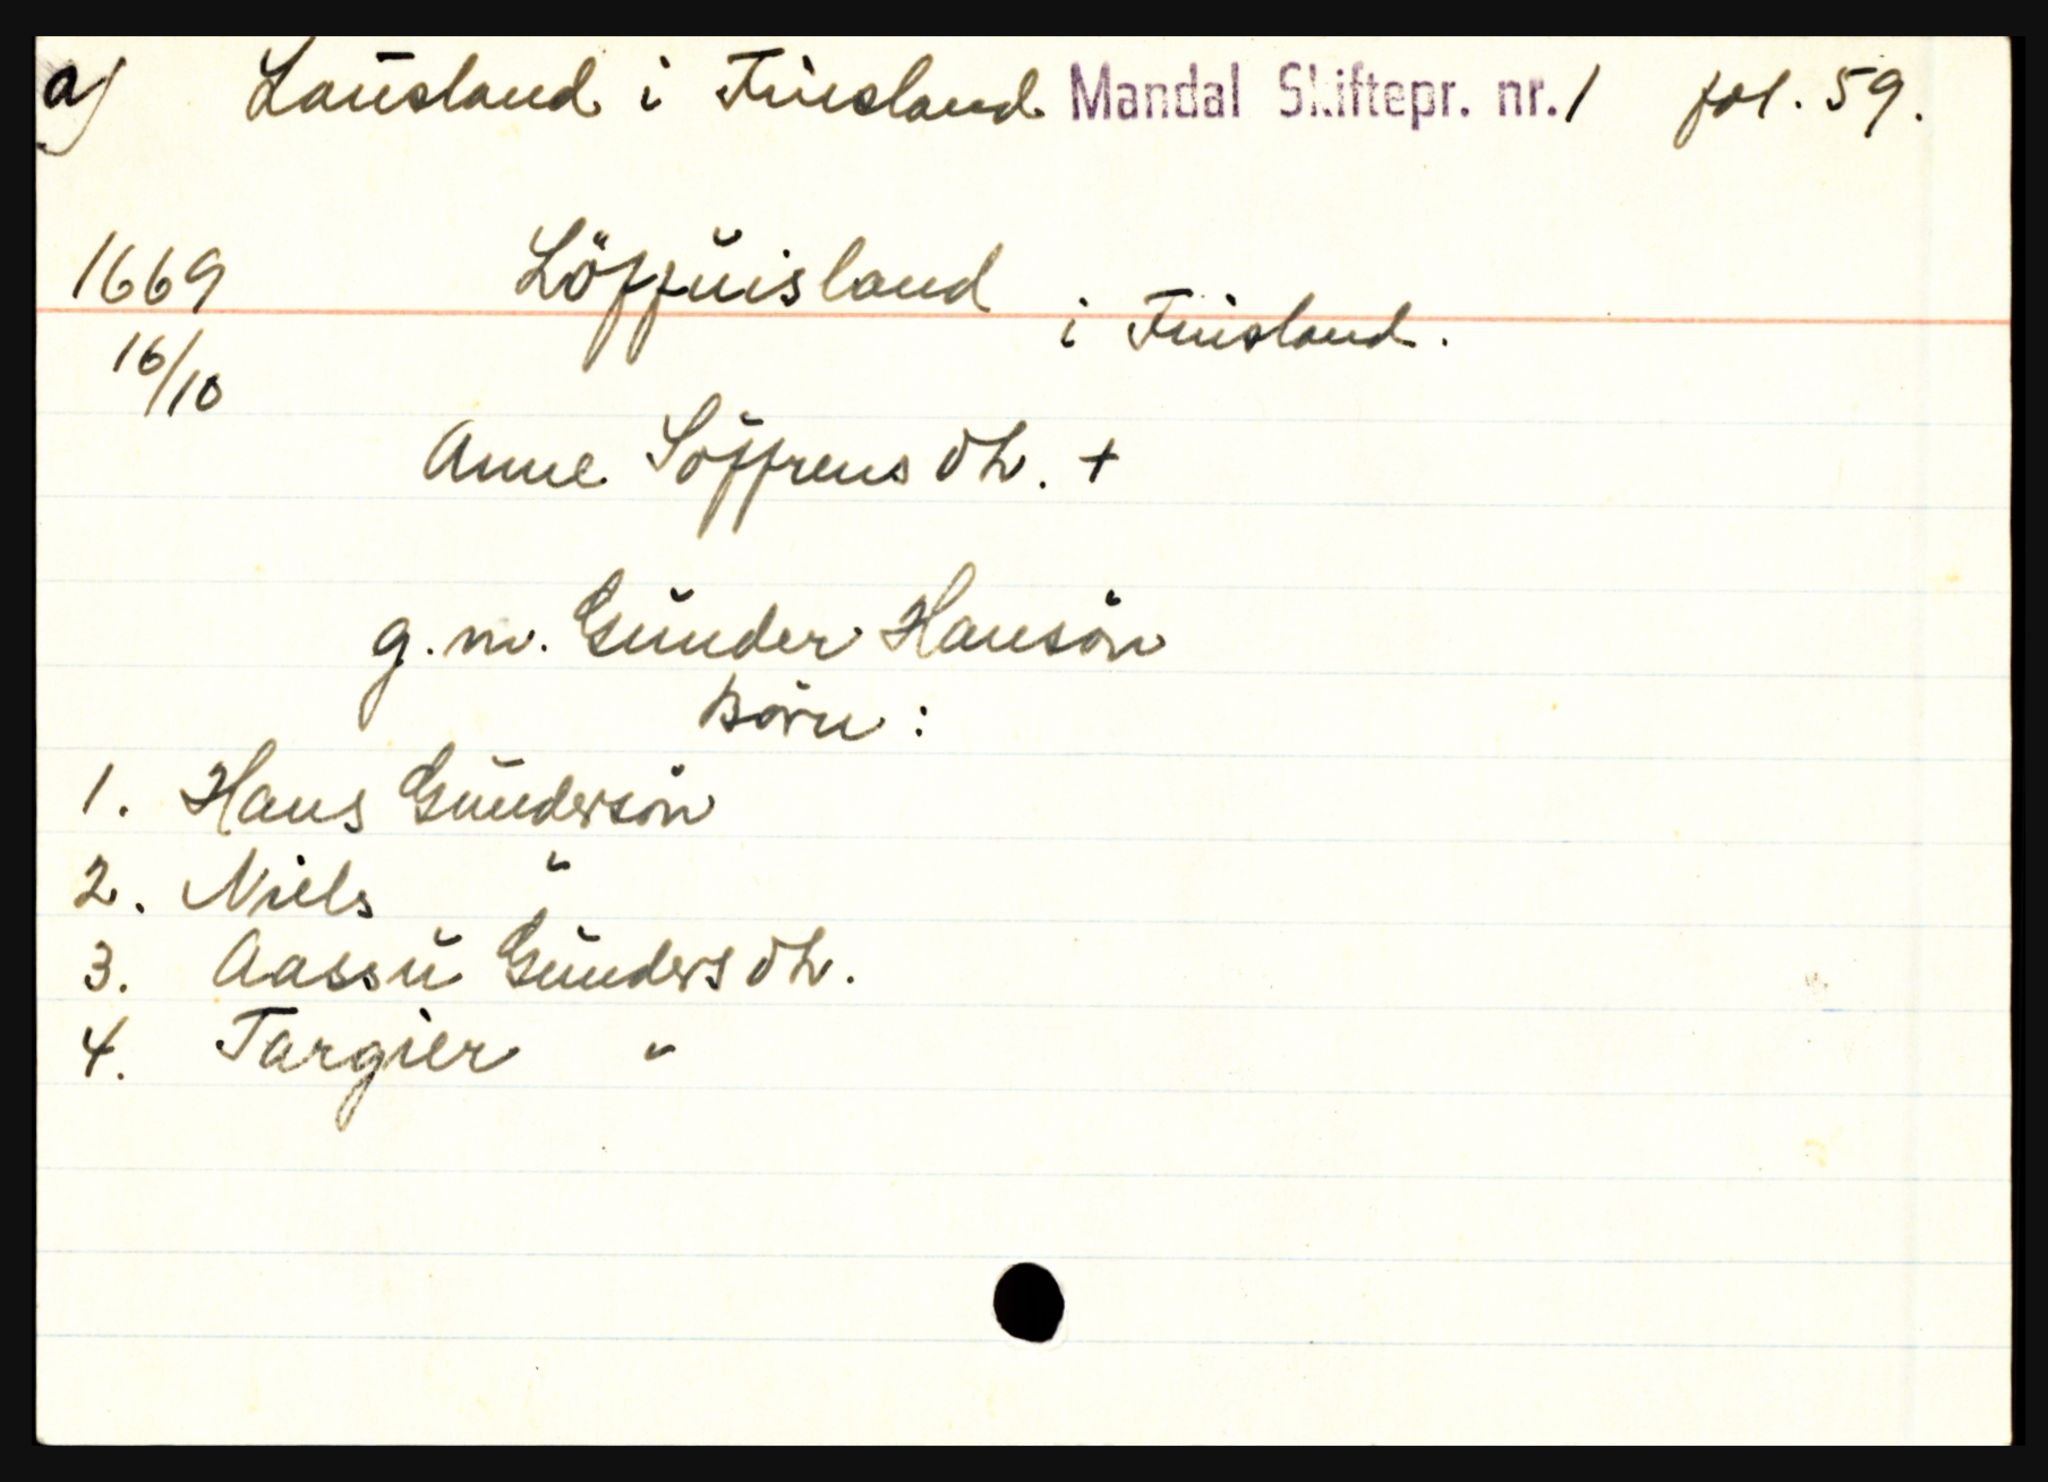 a) Lausland i Finsland Mandal Skiftepr. nr. 1 fol. 59.
1669 Löffuisland i Finsland.
16/10
Anne Söffrensdtr. +
g.m. Gunder Hansön
Börn:
1. Hans Gundersön
2. Niels "
3. Aassu Gundersdtr.
4. Targier "